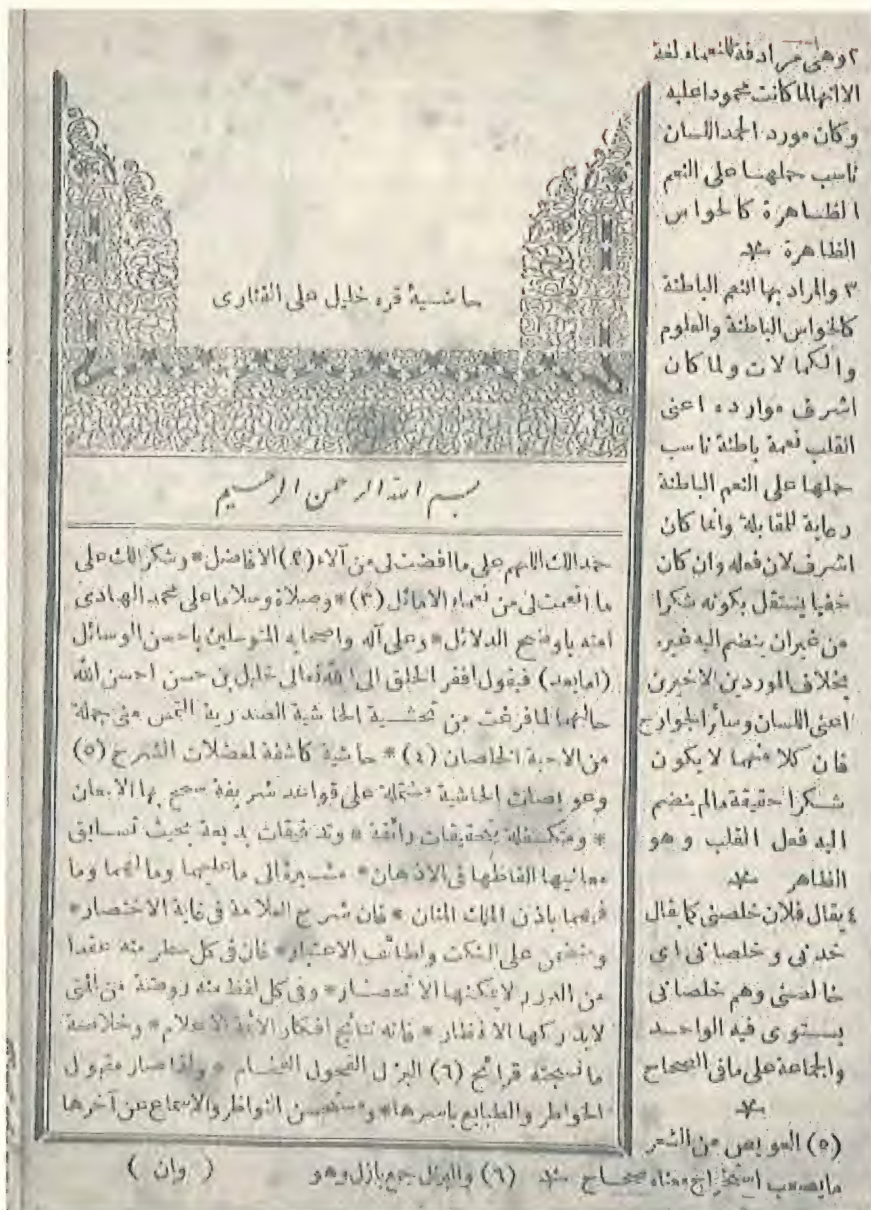 حاشية قره خليل على الفنارى
بسم الله الرحمن الرحيم
حمدا لك اللهم على ما افضت لى من آلاء (٢) الافاضل * وشكرا لك على
ما انعمت لى من نعماء الاماثل (٣) * وصلاة وسلاما على محمد الهادى
امته باوضح الدلائل * وعلى آله واصحابه المتوسلين باحسن الوسائل
(اما بعد) فيقول افقر الخلق الى الله تعالى خليل بن حسن احسن الله
حالهما لما فرغت من تحشية الحاشية الصدرية التمس منى جملة
من الاحبة الخلصان (٤) * حاشية كاشفة لمعضلات الشرح (٥)
وعويصات الحاشية مشتملة على قواعد شريفة سمح بها الامعان
* ومتكفلة بتحقيقات رائقة * وتدقيقات بديعة بحيث تسابق
معانيها الفاظها فى الاذهان * مشيرة الى ما عليهما وما لهما وما
فيهما باذن الملك المنان * فان شرح العلامة فى غاية الاختصار *
ومتضمن على النكت ولطائف الاعتبار * فان فى كل سطر منه عقدا
من الدرر لا يمكنها الانحصار * وفى كل لفظ منه روضة من المنى
لا يدركها الانظار * فانه نتائج افكار الأئمة الاعلام * وخلاصة
ما نسجته قرائح (٦) البزل الفحول الفخام * ولذا صار مقبول
الخواطر والطبايع باسرها * ومستحسن النواظر والاسماع عن آخرها
٢ وهى مرادفة للنعماء لغة
الا انها لما كانت محمودا عليه
وكان مورد الحمد اللسان
ناسب حملها على النعم
الظاهرة كالحواس
الظاهرة
٣ والمراد بها النعم الباطنة
كالحواس الباطنة والعلوم
والكمالات ولما كان
اشرف موارده اعنى
القلب نعمة باطنة ناسب
حملها على النعم الباطنة
رعاية للمقابلة وانما كان
اشرف لان فعله وان كان
خفيا يستقل بكونه شكرا
من غير ان ينضم اليه غيره
بخلاف الموردين الاخيرين
اعنى اللسان وسائر الجوارح
فان كلا منهما لا يكون
شكرا حقيقة ما لم ينضم
اليه فعل القلب وهو
الظاهر
٤ يقال فلان خلصنى كما يقال
خدنى وخلصانى اى
خالصنى وهم خلصانى
يستوى فيه الواحد
والجماعة على ما فى الصحاح
(٥) العويص من الشعر
ما يصعب استخراج معناه صحاح (٦) والبزل جمع بازل وهو
( وان )